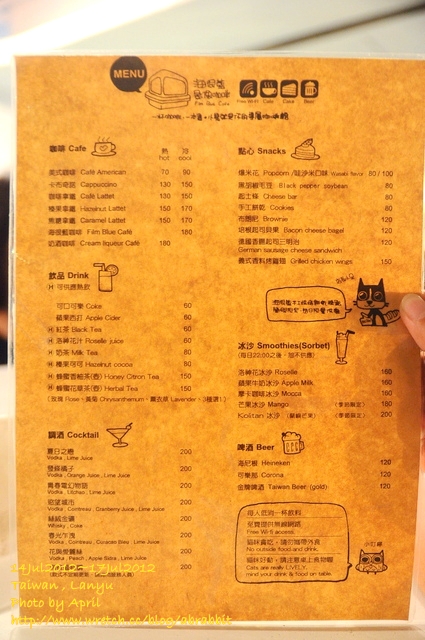 MENU
Free Wi-Fi Cafe Cake Beer
咖啡 Cafe
熱 冷
hot cool
美式咖啡 Café American 70 90
卡布奇諾 Cappuccino 130 150
咖啡拿鐵 Café Lattet 130 150
榛果拿鐵 Hazelnut Lattet 150 170
焦糖拿鐵 Caramel Lattet 150 170
海很藍咖啡 Film Blue Café 180
奶酒咖啡 Cream liqueur Café 180
飲品 Drink
H 可供應熱飲
可口可樂 Coke 60
蘋果西打 Apple Cider 60
H 紅茶 Black Tea 60
H 洛神花汁 Roselle juice 60
H 奶茶 Milk Tea 60
H 榛果可可 Hazelnut cocoa 80
H 蜂蜜香柚茶(壺) Honey Citron Tea 150
H 蜂蜜花草茶(壺) Herbal Tea 150
(玫瑰 Rose、黃菊 Chrysanthemum、薰衣草 Lavender，3種選1)
調酒 Cocktail
夏日之戀 200
Vodka , Lime Juice
螢絲橘子 200
Vodka , Orange Juice , Lime Juice
青春電幻物語 200
Vodka , Litchee , Lime Juice
慾望城市 200
Vodka , Cointreau , Cranberry Juice , Lime Juice
絲絨金礦 200
Whisky , Coke
春光乍洩 200
Vodka , Cointreau , Curacao Blue , Lime Juice
花與愛麗絲 200
Vodka , Peach , Apple Sabra , Lime Juice
200
點心 Snacks
爆米花 Popcorn /哇沙米口味 Wasabi flavor 80 / 100
黑胡椒毛豆 Black pepper soybean 80
起士條 Cheese bar 80
手工餅乾 Cookies 80
布朗尼 Brownie 120
培根起司貝果 Bacon cheese bagel 120
德國香腸起司三明治 120
German sausage cheese sandwich
義式香料烤雞翅 Grilled chicken wings 150
冰沙 Smoothies(Sorbet)
(每日22:00之後，恕不供應)
洛神花冰沙 Roselle 160
蘋果牛奶冰沙 Apple Milk 160
摩卡咖啡冰沙 Mocca 160
芒果冰沙 Mango (季節限定) 180
Kolitan 冰沙 (季節限定) 200
啤酒 Beer
海尼根 Heineken 120
可樂那 Corona 120
金牌啤酒 Taiwan Beer (gold) 120
每人低消一杯飲料
至貴提供無線網路
Free Wi-fi access
貓咪貪吃，請勿攜帶外食
No outside food and drink.
貓咪好動，請注意桌上食物喔
Cats are really LIVELY,
mind your drink & food on table.
14Jul2012~17Jul2012
Taiwan , Lanyu
Photo by April
http://www.wretch.cc/blog/abrabbit